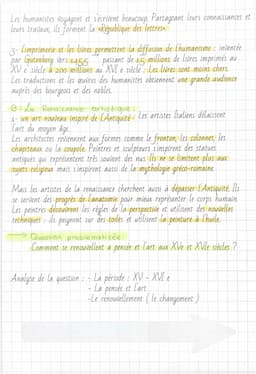 Les humanistes voyagent et s'écrivent beaucoup. Partageant leurs connaissances et
leurs travaux, ils forment la «République des lettres».
3- L'imprimerie et les livres permettent la diffusion de l'humanisme : inventée
par Gutenberg vers 1455, passant de 15 millions de livres imprimés au
XV e siècle à 200 millions au XVI e siècle. Les livres sont moins chers.
Les traductions et les œuvres des humanistes obtiennent une grande audience
auprès des bourgeois et des nobles.
B - La Renaissance artistique :
1- un art nouveau inspiré de l'Antiquité : Les artistes Italiens délaissent
l'art du moyen âge.
Les architectes reviennent aux formes comme le fronton, les colonnes, les
chapiteaux ou la coupole. Peintres et sculpteurs s'inspirent des statues
antiques qui représentent très souvent des nus. Ils ne se limitent plus aux
sujets religieux mais s'inspirent aussi de la mythologie gréco-romaine.
Mais les artistes de la renaissance cherchent aussi à dépasser l'Antiquité. Ils
se servent des progrès de l'anatomie pour mieux représenter le corps humain.
Les peintres découvrent les règles de la perspective et utilisent des nouvelles
techniques : ils peignent sur des toiles et utilisent la peinture à l'huile.
Question problématisée :
Comment se renouvellent a pensée et l'art aux XVe et XVIe siècles ?
Analyse de la question : - La période : XV - XVI e
- La pensée et l'art
-Le renouvellement ( le changement )